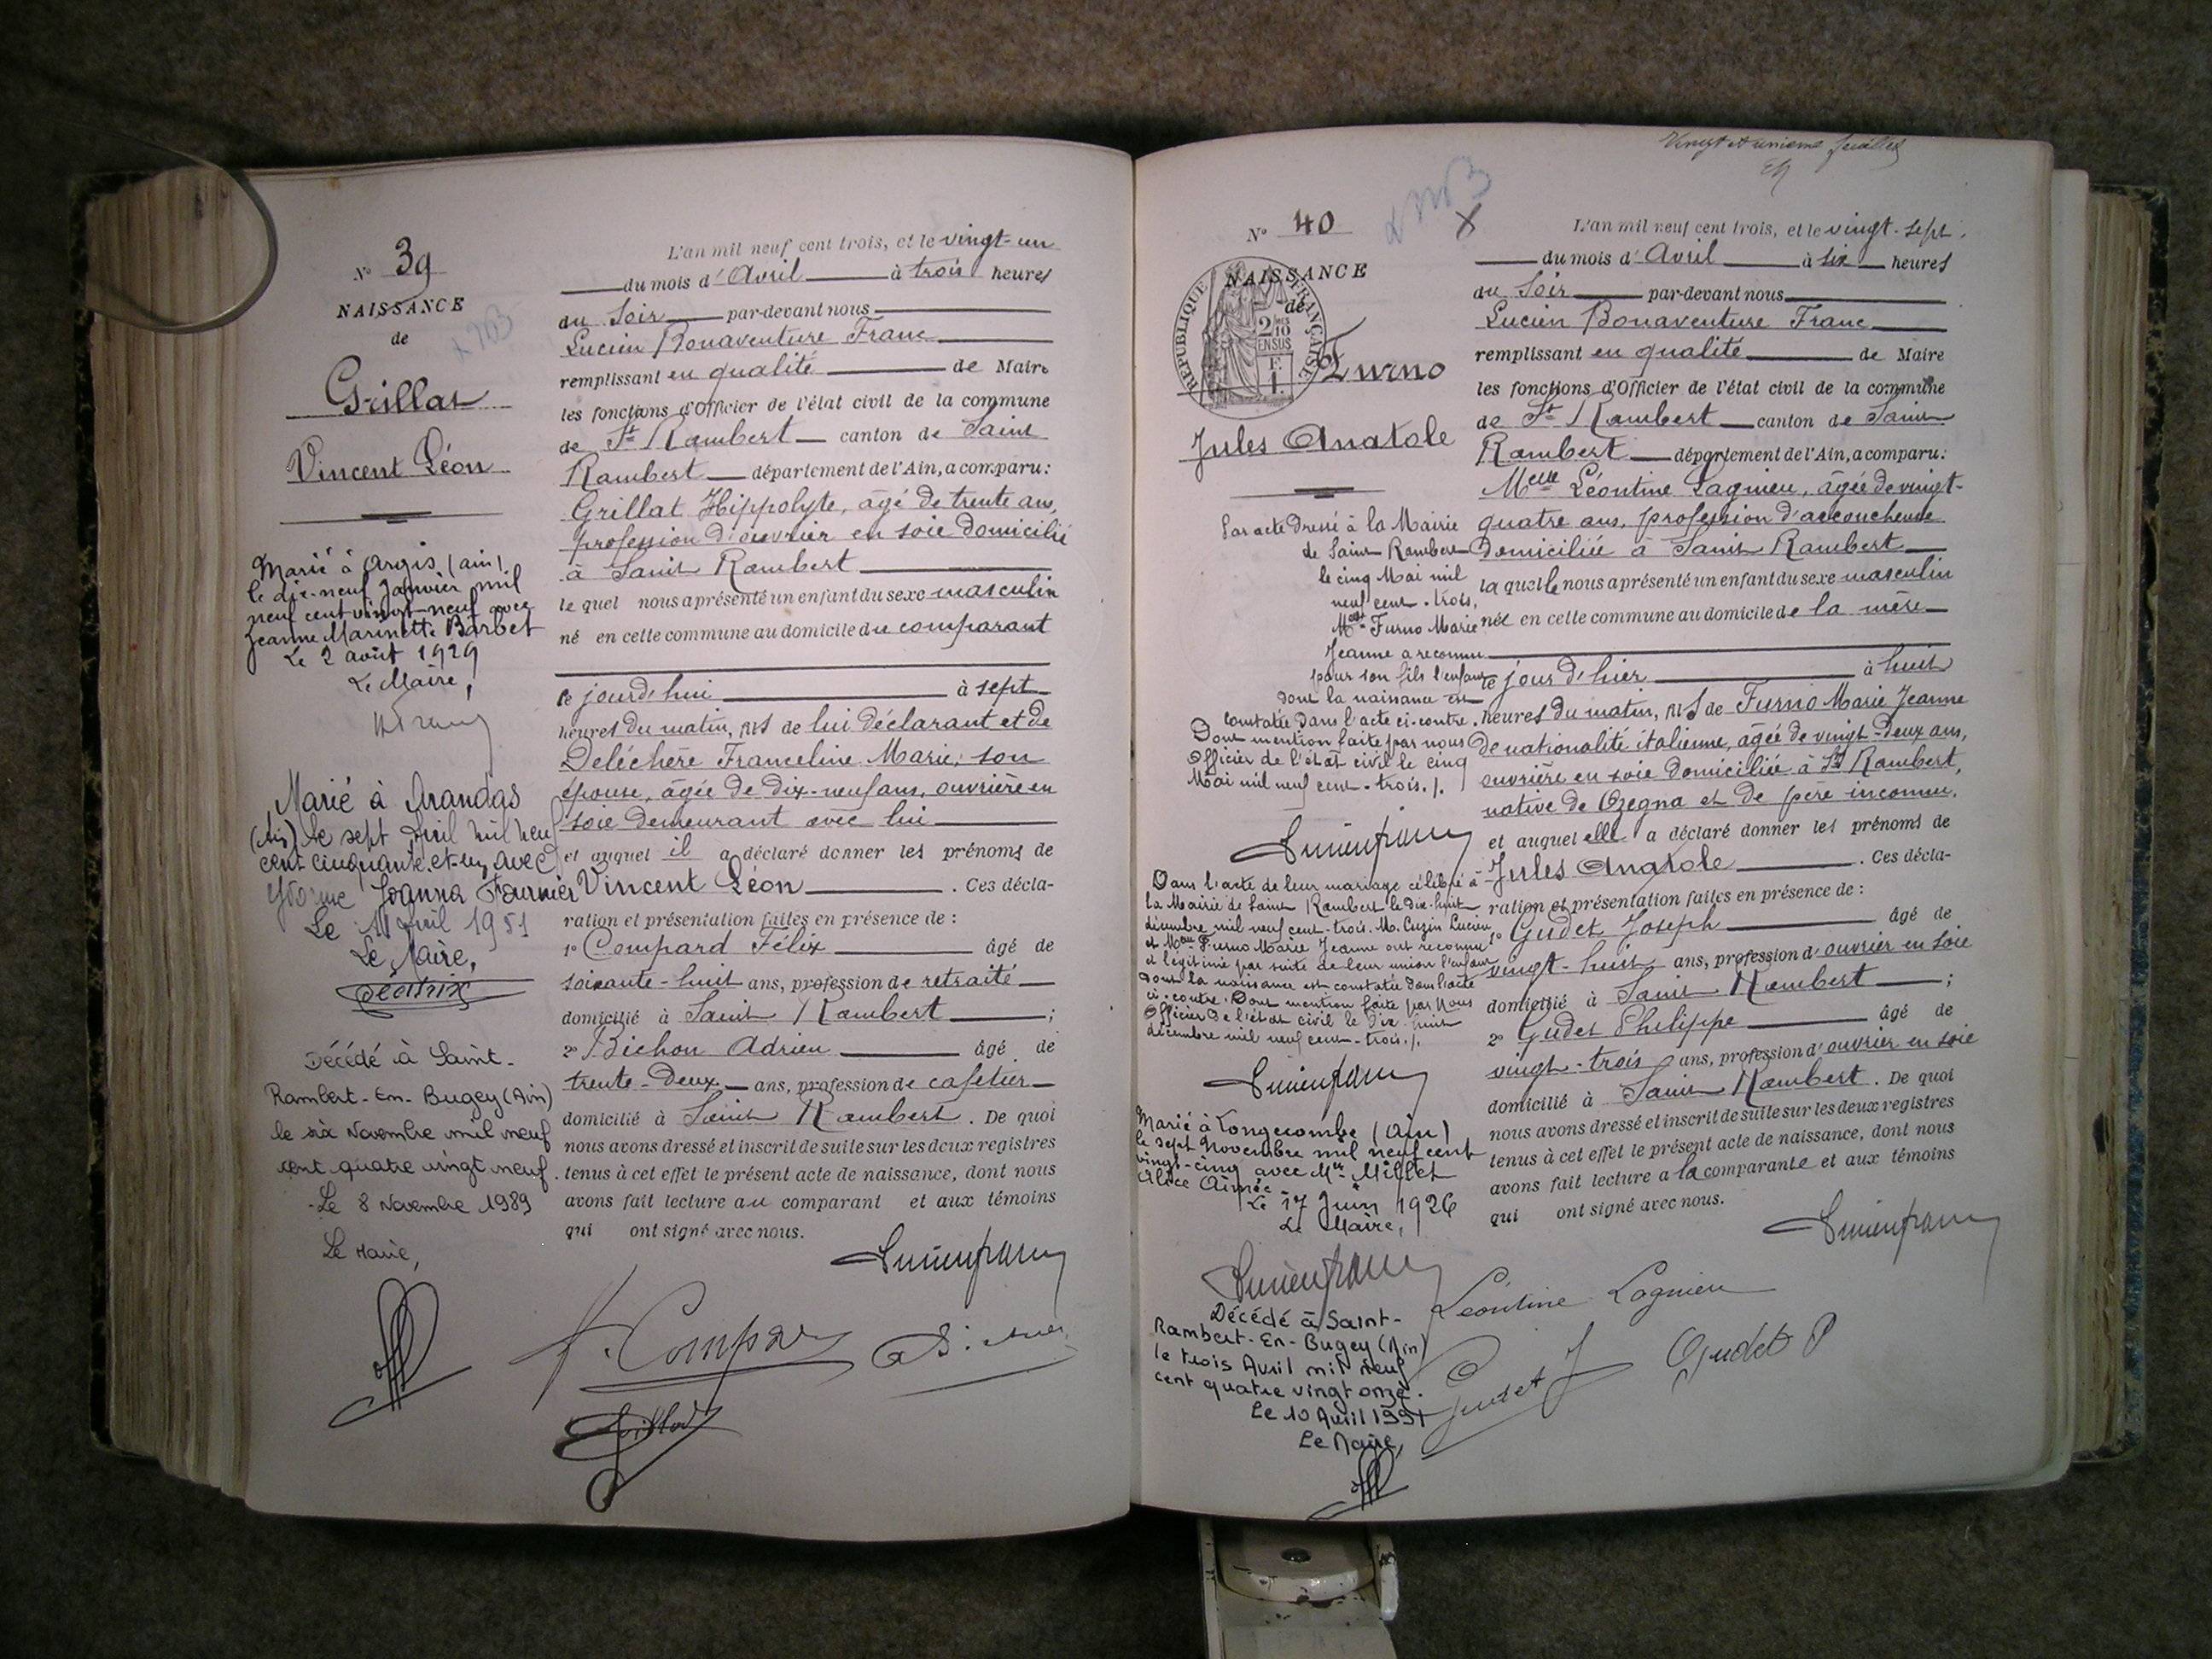 N° 39
NAISSANCE
de
Grillat
Vincent Léon
Marié à Argis (ain)
le dix-neuf Janvier mil
neuf cent vingt-neuf avec
Jeanne Marinette Barbet
Le 2 août 1929
Le Maire,
Marié à Arandas
(Ain) le sept Avril mil neuf
cent cinquante-et-un avec
Yvonne Joanna Fournier
Le 11 Avril 1951
Le Maire,
Décédé à Saint-
Rambert-En-Bugey (Ain)
le six Novembre mil neuf
cent quatre vingt neuf.
Le 8 Novembre 1989
Le Maire,
L'an mil neuf cent trois, et le vingt-un
du mois d'Avril à trois heures
du Soir par-devant nous
Lucien Bonaventure Franc
remplissant en qualité de Maire
les fonctions d'Officier de l'état civil de la commune
de St Rambert canton de Saint
Rambert département de l'Ain, a comparu:
Grillat Hippolyte, âgé de trente ans,
profession d'ouvrier en soie domicilié
à Saint Rambert
le quel nous a présenté un enfant du sexe masculin
né en cette commune au domicile du comparant
ce jourd'hui à sept
heures du matin, fils de lui déclarant et de
Deléchère Franceline Marie, son
épouse, âgée de dix-neuf ans, ouvrière en
soie demeurant avec lui
et auquel il a déclaré donner les prénoms de
Vincent Léon . Ces décla-
ration et présentation faites en présence de :
1° Compard Félix âgé de
soixante-huit ans, profession de retraité
domicilié à Saint Rambert ;
2° Bichon Adrien âgé de
trente-deux ans, profession de cafetier
domicilié à Saint Rambert . De quoi
nous avons dressé et inscrit de suite sur les deux registres
tenus à cet effet le présent acte de naissance, dont nous
avons fait lecture au comparant et aux témoins
qui ont signé avec nous.
Lucien franc
F. Compar
Grillat
Vingt et unième feuillet
N° 40
NAISSANCE
de
REPUBLIQUE FRANÇAISE
2/10 ENSUS
F.
1.
Furno
Jules Anatole
Par acte dressé à la Mairie
de Saint Rambert
le cinq Mai mil
neuf cent-trois,
Melle Furno Marie
Jeanne a reconnu
pour son fils l'enfant
dont la naissance est
constatée dans l'acte ci-contre.
Dont mention faite par nous
Officier de l'état civil le cinq
Mai mil neuf cent-trois./.
Lucien franc
Dans l'acte de leur mariage célébré à
la Mairie de Saint Rambert le dix-huit
décembre mil neuf cent-trois. M. Cuzin Lucien
et Melle Furno Marie Jeanne ont reconnu
et légitimé par suite de leur union l'enfant
dont la naissance est constatée dans l'acte
ci-contre. Dont mention faite par Nous
Officier de l'état civil le dix huit
décembre mil neuf cent-trois./.
Lucien franc
Marié à Longecombe (Ain)
le sept Novembre mil neuf cent
vingt-cinq avec Melle Millet
Alice Aimée
Le 17 Juin 1926
Le Maire,
Lucien franc
Décédé à Saint-
Rambert-En-Bugey (Ain)
le trois Avril mil neuf
cent quatre vingt onze.
Le 10 Avril 1991
Le Maire,
L'an mil neuf cent trois, et le vingt-sept,
du mois d'Avril à six heures
du Soir par-devant nous
Lucien Bonaventure Franc
remplissant en qualité de Maire
les fonctions d'Officier de l'état civil de la commune
de St Rambert canton de Saint
Rambert département de l'Ain, a comparu:
Melle Léontine Lagnieu, âgée de vingt-
quatre ans, profession d'accoucheuse
domiciliée à Saint Rambert
la quelle nous a présenté un enfant du sexe masculin
née en cette commune au domicile de la mère
le jour d'hier à huit
heures du matin, fils de Furno Marie Jeanne
de nationalité italienne, âgée de vingt-deux ans,
ouvrière en soie domiciliée à St Rambert,
native de Ozegna et de père inconnu,
et auquel elle a déclaré donner les prénoms de
Jules Anatole . Ces décla-
ration et présentation faites en présence de :
1° Gudet Joseph âgé de
vingt-huit ans, profession d'ouvrier en soie
domicilié à Saint Rambert ;
2° Gudet Philippe âgé de
vingt-trois ans, profession d'ouvrier en soie
domicilié à Saint Rambert . De quoi
nous avons dressé et inscrit de suite sur les deux registres
tenus à cet effet le présent acte de naissance, dont nous
avons fait lecture a la comparante et aux témoins
qui ont signé avec nous.
Lucien franc
Léontine Lagnieu
Gudet J
Gudet P